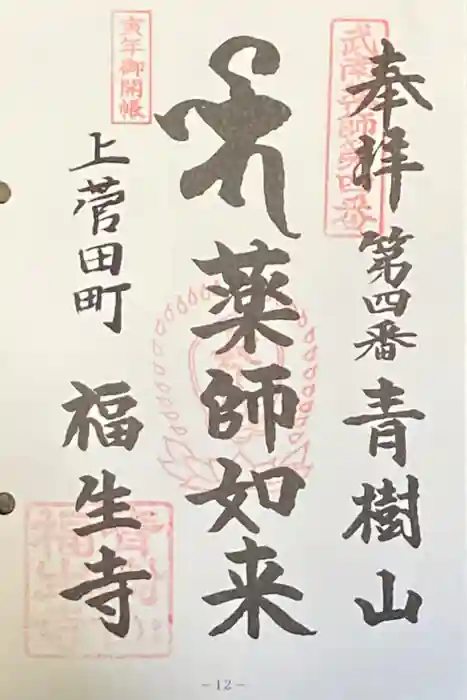 奉拝 第四番 青樹山
武南薬師第四番
薬師如来
寅年御開帳
上菅田町 福生寺
-12-